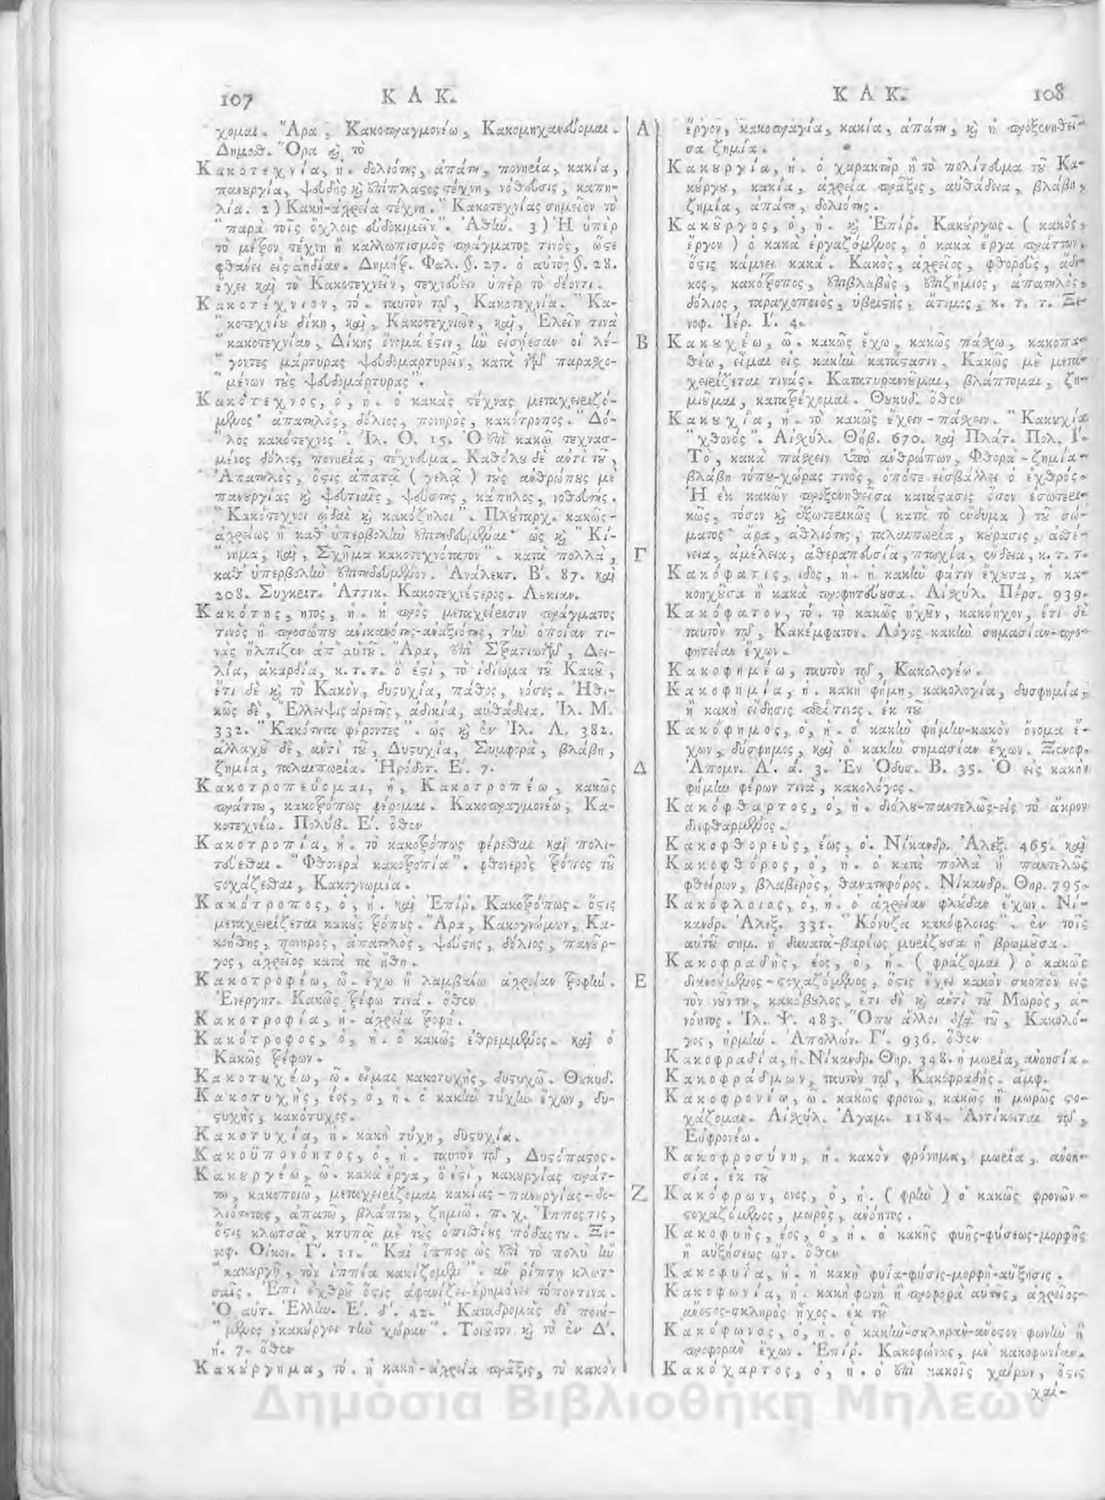 107 ΚΑΚ.
χομαι. Ἄρα, Κακοπραγμονέω, Κακομηχανεύομαι.
Δημοσθ. Ὅρα καὶ τὸ
Κακοτεχνία, ἡ. δολιότης, ἀπάτη, πονηρία, κακία,
πανουργία, ψευδὴς καὶ ἐπίπλαστος τέχνη, νόθευσις, καπη-
λία. 2) Κακὴ-ἀχρεία τέχνη. " Κακοτεχνίας σημεῖον τὸ
" παρὰ τοῖς ὄχλοις εὐδοκιμεῖν". Ἀθήν. 3) Ἡ ὑπὲρ
τὸ μέτρον τέχνη ἢ καλλωπισμὸς πράγματος τινὸς, ὥστε
φθάνει εἰς ἀηδίαν. Δημήτρ. Φαλ. §. 27. ὁ αὐτὸς §. 28.
ἔχει καὶ τὸ Κακοτεχνεῖν, τεχνεύειν ὑπὲρ τὸ δέοντι.
Κακοτέχνιον, τό. ταυτὸν τῷ, Κακοτεχνία. " Κα-
" κοτεχνίου δίκη, καὶ, Κακοτεχνιῶν, καὶ, Ἑλεῖν τινὰ
" κακοτεχνίαν, Δίκης ὄνομά ἐστιν, ἣν εἰσῄεσαν οἱ λέ-
" γοντες μάρτυρας ψευδομαρτυρεῖν, κατὰ τῶν παρασχο-
" μένων τοὺς ψευδομάρτυρας".
Κακότεχνος, ὁ, ἡ. ὁ κακὰς τέχνας μεταχειριζό-
μενος· ἀπατηλὸς, δόλιος, πονηρὸς, κακότροπος. " Δό-
" λος κακότεχνος". Ἰλ. Ο. 15. Ὁ ἐπὶ κακῷ τεχνασ-
μένος δόλος, πονηρία, τέχνευμα. Καθόλου δὲ ἀντὶ τοῦ,
Ἀπατηλὸς, ὅστις ἀπατᾷ ( γελᾷ ) τοὺς ἀνθρώπους μὲ
πανουργίας καὶ ψευτιαῖς, ψεύστης, κάπηλος, νοθευτής.
" Κακότεχνοι ᾠδαὶ καὶ κακόζηλοι". Πλούταρχ. κακῶς-
ἀχρείως ἢ καθ' ὑπερβολὴν ἐπιτηδευμέναι· ὡς καὶ " Κί-
" νημα, καὶ, Σχῆμα κακοτεχνότατον". κατὰ πολλὰ,
καθ' ὑπερβολὴν ἐπιτηδευμένον. Ἀνάλεκτ. Β΄. 87. καὶ
208. Συγκριτ. Ἀττικ. Κακοτεχνέστερος. Λουκιαν.
Κακότης, ητος, ἡ. ἡ πρὸς μεταχείρισιν πράγματος
τινὸς ἢ προσώπου ἀνικανότης-ἀναξιότης, τὴν ὁποίαν τι-
νὰς ἤλπιζεν ἀπ' αὐτοῦ. Ἄρα, ἐπὶ Στρατιωτῶν, Δει-
λία, ἀκαρδία, κ. τ. τ. ὅ ἐστι, τὸ ἰδίωμα τοῦ Κακοῦ,
ἔτι δὲ καὶ τὸ Κακὸν, δυστυχία, πάθος, νόσος. Ἠθι-
κῶς δὲ, Ἔλλειψις ἀρετῆς, ἀδικία, αὐθάδεια. Ἰλ. Μ.
332. " Κακότητα φέροντες". ὡς καὶ ἐν Ἰλ. Λ. 382.
ἀλλαχοῦ δὲ, ἀντὶ τοῦ, Δυστυχία, Συμφορὰ, βλάβη,
ζημία, ταλαιπωρία. Ἡρόδοτ. Ε΄. 7.
Κακοτροπεύομαι, ἢ, Κακοτροπέω, κακῶς
πράττω, κακοτρόπως φέρομαι. Κακοπραγμονέω, Κα-
κοτεχνέω. Πολύβ. Ε΄. ὅθεν
Κακοτροπία, ἡ. τὸ κακοτρόπως φέρεσθαι καὶ πολι-
τεύεσθαι. " Φθονερὰ κακοτροπία". φθονερὸς τρόπος τοῦ
στοχάζεσθαι, Κακογνωμία.
Κακότροπος, ὁ, ἡ. καὶ Ἐπίρ. Κακοτρόπως. ὅστις
μεταχειρίζεται κακοὺς τρόπους. Ἄρα, Κακογνώμων, Κα-
κοήθης, πονηρὸς, ἀπατηλὸς, ψεύστης, δόλιος, πανοῦρ-
γος, ἀχρεῖος κατὰ τὰ ἤθη.
Κακοτροφέω, ῶ. ἔχω ἢ λαμβάνω ἀχρείαν τροφήν.
Ἐνεργητ. Κακῶς τρέφω τινά. ὅθεν
Κακοτροφία, ἡ. ἀχρεία τροφή.
Κακότροφος, ὁ, ἡ. ὁ κακῶς ἐθρεμμένος. καὶ ὁ
Κακῶς τρέφων.
Κακοτυχέω, ῶ. εἶμαι κακοτυχὴς, δυστυχῶ. Θουκυδ.
Κακοτυχής, έος, ὁ, ἡ. ὁ κακὴν τύχην ἔχων, δυ-
στυχὴς, κακότυχος.
Κακοτυχία, ἡ. κακὴ τύχη, δυστυχία.
Κακοϋπονόητος, ὁ, ἡ. ταυτὸν τῷ, Δυστόπαστος.
Κακουργέω, ῶ. κακὰ ἔργα, ὅ ἐστι, κακουργίας πράτ-
τω, κακοποιῶ, μεταχειρίζομαι κακίας-πανουργίας-δο-
λιότητας, ἀπατῶ, βλάπτω, ζημιῶ. π. χ. Ἵππος τις,
ὅστις κλωτσᾷ, κτυπᾷ μὲ τοὺς ὀπισθίους πόδας του. Ξε-
νοφ. Οἰκον. Γ΄. 11. " Καὶ ἵππος ὡς ἐπὶ τὸ πολὺ ἢν
" κακουργῇ, τὸν ἱππέα κακίζομεν". ἂν ῥίπτῃ κλωτ-
σαῖς. Ἐπὶ ἐχθροῦ ὅστις ἀφανίζει-ἐρημόνει τόπον τινα.
Ὁ αὐτ. Ἑλλην. Ε΄. δ΄. 42. " Καταδρομὰς δὲ ποιού-
" μενος ἐκακούργει τὴν χώραν". Τοιοῦτον καὶ τὸ ἐν Δ΄.
ή. 7. ὅθεν
Κακούργημα, τό. ἡ κακὴ-ἀχρεία πρᾶξις, τὸ κακὸν
Α
Β
Γ
Δ
Ε
Ζ
ΚΑΚ. 108
ἔργον, κακοπραγία, κακία, ἀπάτη, καὶ ἡ προξενηθεῖ-
σα ζημία.
Κακουργία, ἡ. ὁ χαρακτὴρ ἢ τὸ πολίτευμα τοῦ Κα-
κούργου, κακία, ἀχρεία πρᾶξις, αὐθάδεια, βλάβη,
ζημία, ἀπάτη, δολιότης.
Κακοῦργος, ὁ, ἡ. καὶ Ἐπίρ. Κακούργως. ( κακὸς,
ἔργον ) ὁ κακὰ ἐργαζόμενος, ὁ κακὰ ἔργα πράττων,
ὅστις κάμνει κακά. Κακὸς, ἀχρεῖος, φθορεὺς, ἄδι-
κος, κακότροπος, ἐπιβλαβὴς, ἐπιζήμιος, ἀπατηλὸς,
δόλιος, ταραχοποιὸς, ὑβριστὴς, ἄτιμος, κ. τ. τ. Ξε-
νοφ. Ἱέρ. Ι΄. 4.
Κακουχέω, ῶ. κακῶς ἔχω, κακῶς πάσχω, κακοπα-
θέω, εἶμαι εἰς κακὴν κατάστασιν. Κακῶς μὲ μετα-
χειρίζεται τινάς. Κατατυραννοῦμαι, βλάπτομαι, ζη-
μιοῦμαι, κατατρέχομαι. Θουκυδ. ὅθεν
Κακουχία, ἡ. τὸ κακῶς ἔχειν-πάσχειν. " Κακουχία
" χθονὸς". Αἰσχύλ. Θήβ. 670. καὶ Πλάτ. Πολ. Ι΄.
Τὸ, κακὰ πάσχειν ὑπὸ ἀνθρώπων, Φθορὰ-ζημία-
βλάβη τόπου-χώρας τινὸς, ὁπότε εἰσβάλλει ὁ ἐχθρός.
Ἡ ἐκ κακῶν προξενηθεῖσα κατάστασις ὅσον ἐσωτερι-
κῶς, τόσον καὶ ἐξωτερικῶς ( κατὰ τὸ ἔνδυμα ) τοῦ σώ-
ματος· ἄρα, ἀθλιότης, ταλαιπωρία, κούρασις, ἀσθέ-
νεια, ἀμέλεια, ἀθεραπευσία, πτωχία, ἔνδεια, κ. τ. τ.
Κακόφατις, ιδος, ἡ. ἡ κακὴν φάτιν ἔχουσα, ἡ κα-
κοηχοῦσα ἢ κακὰ προφητεύουσα. Αἰσχύλ. Πέρσ. 939.
Κακόφατον, τό. τὸ κακῶς ἠχοῦν, κακόηχον, ἔτι δὲ
ταυτὸν τῷ, Κακέμφατον. Λόγος κακὴν σημασίαν-προ-
φητείαν ἔχων.
Κακοφημέω, ταυτὸν τῷ, Κακολογέω.
Κακοφημία, ἡ. κακὴ φήμη, κακολογία, δυσφημία,
ἢ κακὴ εἴδησις περί τινος. ἐκ τοῦ
Κακόφημος, ὁ, ἡ. ὁ κακὴν φήμην-κακὸν ὄνομα ἔ-
χων, δύσφημος, καὶ ὁ κακὴν σημασίαν ἔχων. Ξενοφ.
Ἀπομν. Α΄. ά. 3. Ἐν Ὀδυσ. Β. 35. Ὁ εἰς κακὴν
φήμην φέρων τινὰ, κακολόγος.
Κακόφθαρτος, ὁ, ἡ. διόλου-παντελῶς-εἰς τὸ ἄκρον
διεφθαρμένος.
Κακοφθορεύς, έως, ὁ. Νίκανδρ. Ἀλεξ. 465. καὶ
Κακοφθόρος, ὁ, ἡ. ὁ κατὰ πολλὰ ἢ παντελῶς
φθείρων, βλαβερὸς, θανατηφόρος. Νίκανδρ. Θηρ. 795.
Κακόφλοιος, ὁ, ἡ. ὁ ἀχρείαν φλούδαν ἔχων. Νί-
κανδρ. Ἀλεξ. 331. " Κόνυζα κακόφλοιος". ἐν τοῖς
αὐτοῦ σημ. ἡ δυνατὰ-βαρέως μυρίζουσα ἢ βρωμοῦσα.
Κακοφραδής, έος, ὁ, ἡ. ( φράζομαι ) ὁ κακῶς
διανοούμενος-στοχαζόμενος, ὅστις ἔχει κακὸν σκοπὸν εἰς
τὸν νοῦν του, κακόβουλος, ἔτι δὲ καὶ ἀντὶ τοῦ Μωρὸς, ἀ-
νόητος. Ἰλ. Ψ. 483. Ὅπου ἄλλοι διὰ τοῦ, Κακολό-
γος, ἡρμήν. Ἀπολλών. Γ΄. 936. ὅθεν
Κακοφραδία, ἡ. Νίκανδρ. Θηρ. 348. ἡ μωρία, ἀνοησία.
Κακοφράδμων, ταυτὸν τῷ, Κακοφραδής. ἀμφ.
Κακοφρονέω, ῶ. κακῶς φρονῶ, κακῶς ἢ μωρῶς στο-
χάζομαι. Αἰσχύλ. Ἀγαμ. 1184. Ἀντίκειται τῷ,
Εὐφρονέω.
Κακοφροσύνη, ἡ. κακὸν φρόνημα, μωρία, ἀνοη-
σία. ἐκ τοῦ
Κακόφρων, ονος, ὁ, ἡ. ( φρὴν ) ὁ κακῶς φρονῶν-
στοχαζόμενος, μωρὸς, ἀνόητος.
Κακοφυής, έος, ὁ, ἡ. ὁ κακῆς φυῆς-φύσεως-μορφῆς
ἢ αὐξήσεως ὤν. ὅθεν
Κακοφυΐα, ἡ. ἡ κακὴ φυΐα-φύσις-μορφὴ-αὔξησις.
Κακοφωνία, ἡ. κακὴ φωνὴ ἢ προφορὰ αὐτῆς, ἀχρεῖος-
ἄνοστος-σκληρὸς ἦχος. ἐκ τοῦ
Κακόφωνος, ὁ, ἡ. ὁ κακὴν-σκληρὰν-ἄνοστον φωνὴν ἢ
προφορὰν ἔχων. Ἐπίρ. Κακοφώνως, μὲ κακοφωνίαν.
Κακόχαρτος, ὁ, ἡ. ὁ ἐπὶ κακοῖς χαίρων, ὅστις
χαί-
Δημόσια Βιβλιοθήκη Μηλεών